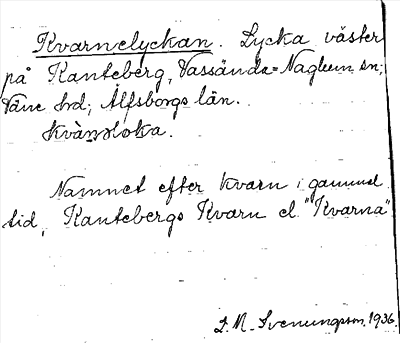 Kvarnelyckan. Lycka väster
på Kanteberg, Vassända-Naglum sn;
Väne hrd; Älfsborgs län.
Namnet efter kvarn i gammal
tid, Kantebergs Kvarn el. "Kvarna"
L. M. Svenungsson, 1936.